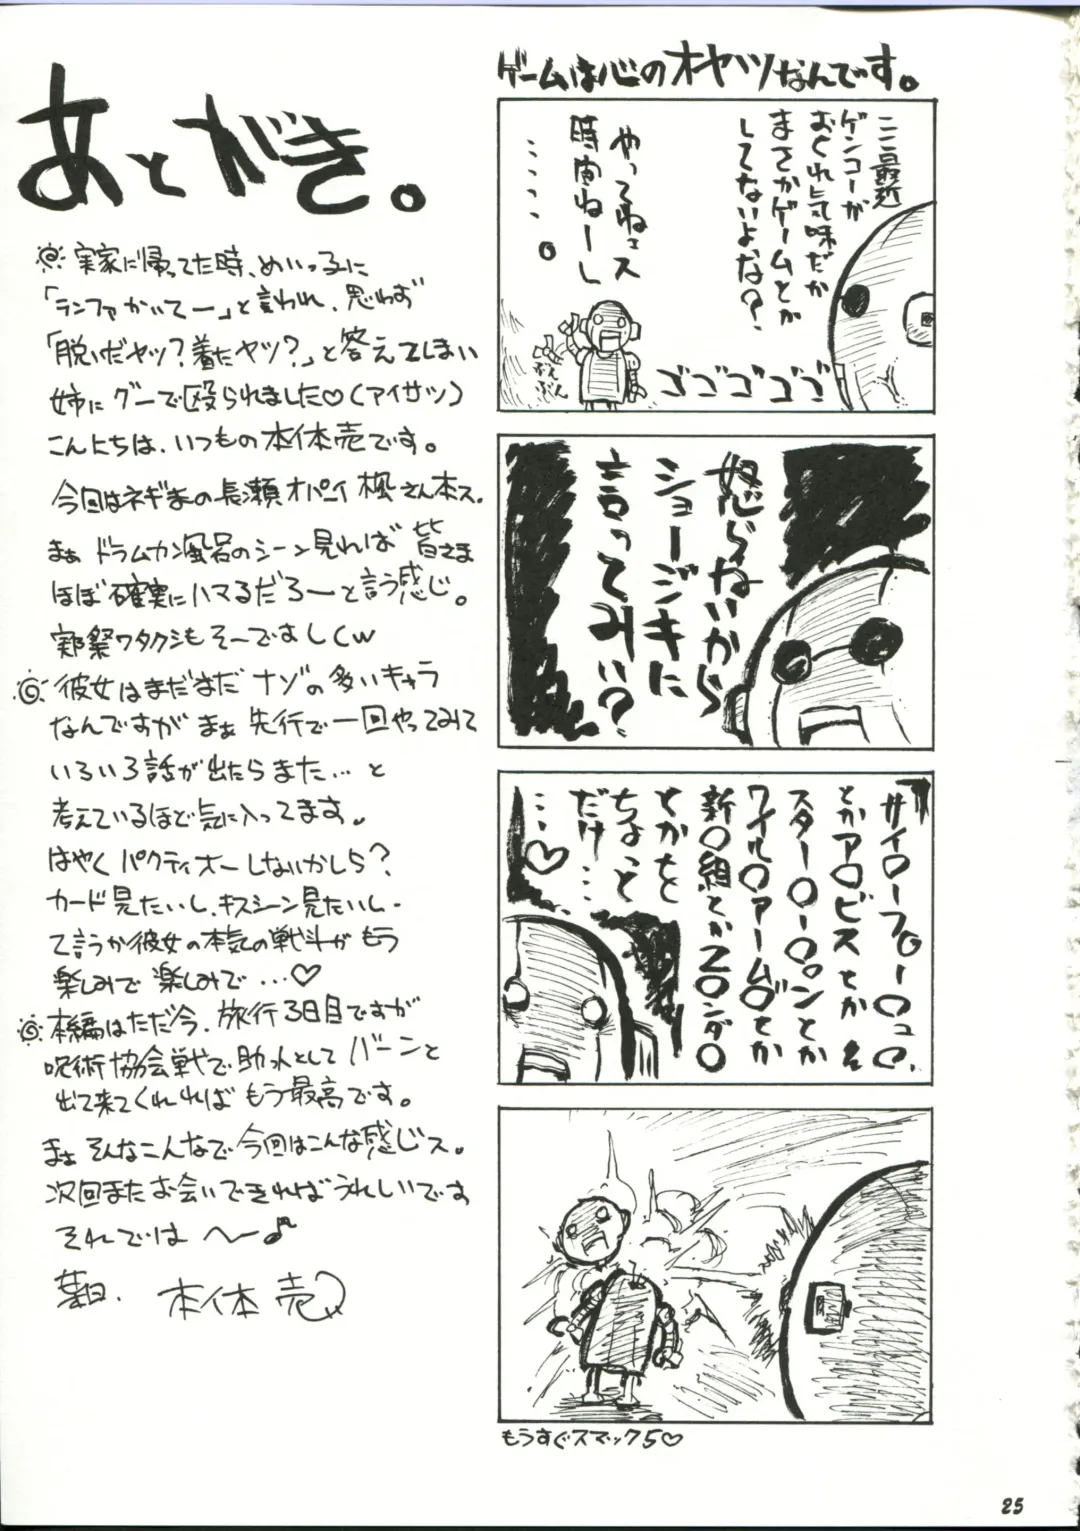 あとがき。
実家に帰ってた時、めいっ子に
「ランファかいてー」と言われ、思わず
「脱いだヤツ?着たヤツ?」と答えてしまい
姉にグーで殴られました♡(アイサツ)
こんにちは、いつもの本体売です。
今回はネギまの長瀬オパーイ楓さん本ス。
まぁドラムカン風呂のシーン見れば皆さま
ほぼ確実にハマるだろーと言う感じ。
実際ワタクシもそーですしくw
彼女はまだまだナゾの多いキャラ
なんですがまぁ先行で一回やってみて
いろいろ話が出たらまた…と
考えているほど気に入ってます。
はやくパクティオーしないかしら?
カード見たいし、キスシーン見たいし、
て言うか彼女の本気の戦斗がもう
楽しみで楽しみで…♡
本編はただ今、旅行3日目ですが
呪術協会戦で助っ人としてバーンと
出て来てくれればもう最高です。
まぁそんなこんなで今回はこんな感じス。
次回またお会いできればうれしいです
それではへ〜♪
本体売
ゲームは心のオヤツなんです。
ここ最近
ゲンコーが
おくれ気味だか
まさかゲームとか
してないよな?
やってねェス
時間ねーし
・・・・・。
ぶんぶん
ゴゴゴゴゴ
怒らねいから
ショージキに
言ってみい?
サイ〇ーフ〇ー〇ュ〇、
とかア〇ビスとか
スター〇ー〇〇ンとか
ワイル〇アーム〇とか
新〇組とかZ〇ンダ〇
とかをと
ちょっと
だけ…
…♡
もうすぐスマック5♡
25